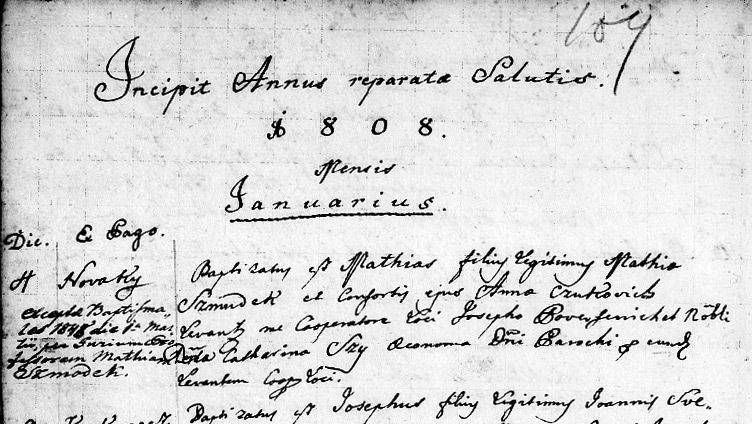 107
Incipit Annus reparatæ Salutis.
1808.
Mensis
Januarius.
Die. E Pago.
4 Novaky Baptizatus est Mathias filius legitimus Mathiæ
Szmudek et Consortis ejus Anna Czukovich
Levante me Cooperatore Loci Josepho
Catharina Szy Œconoma Dni Parochi
Levantem Coop Loci.
excepta Baptisma
1848 die 1a Mar
tii per
Mathiam
Szmodek.
Baptizatus est Josephus filius legitimus Joannis Sve-